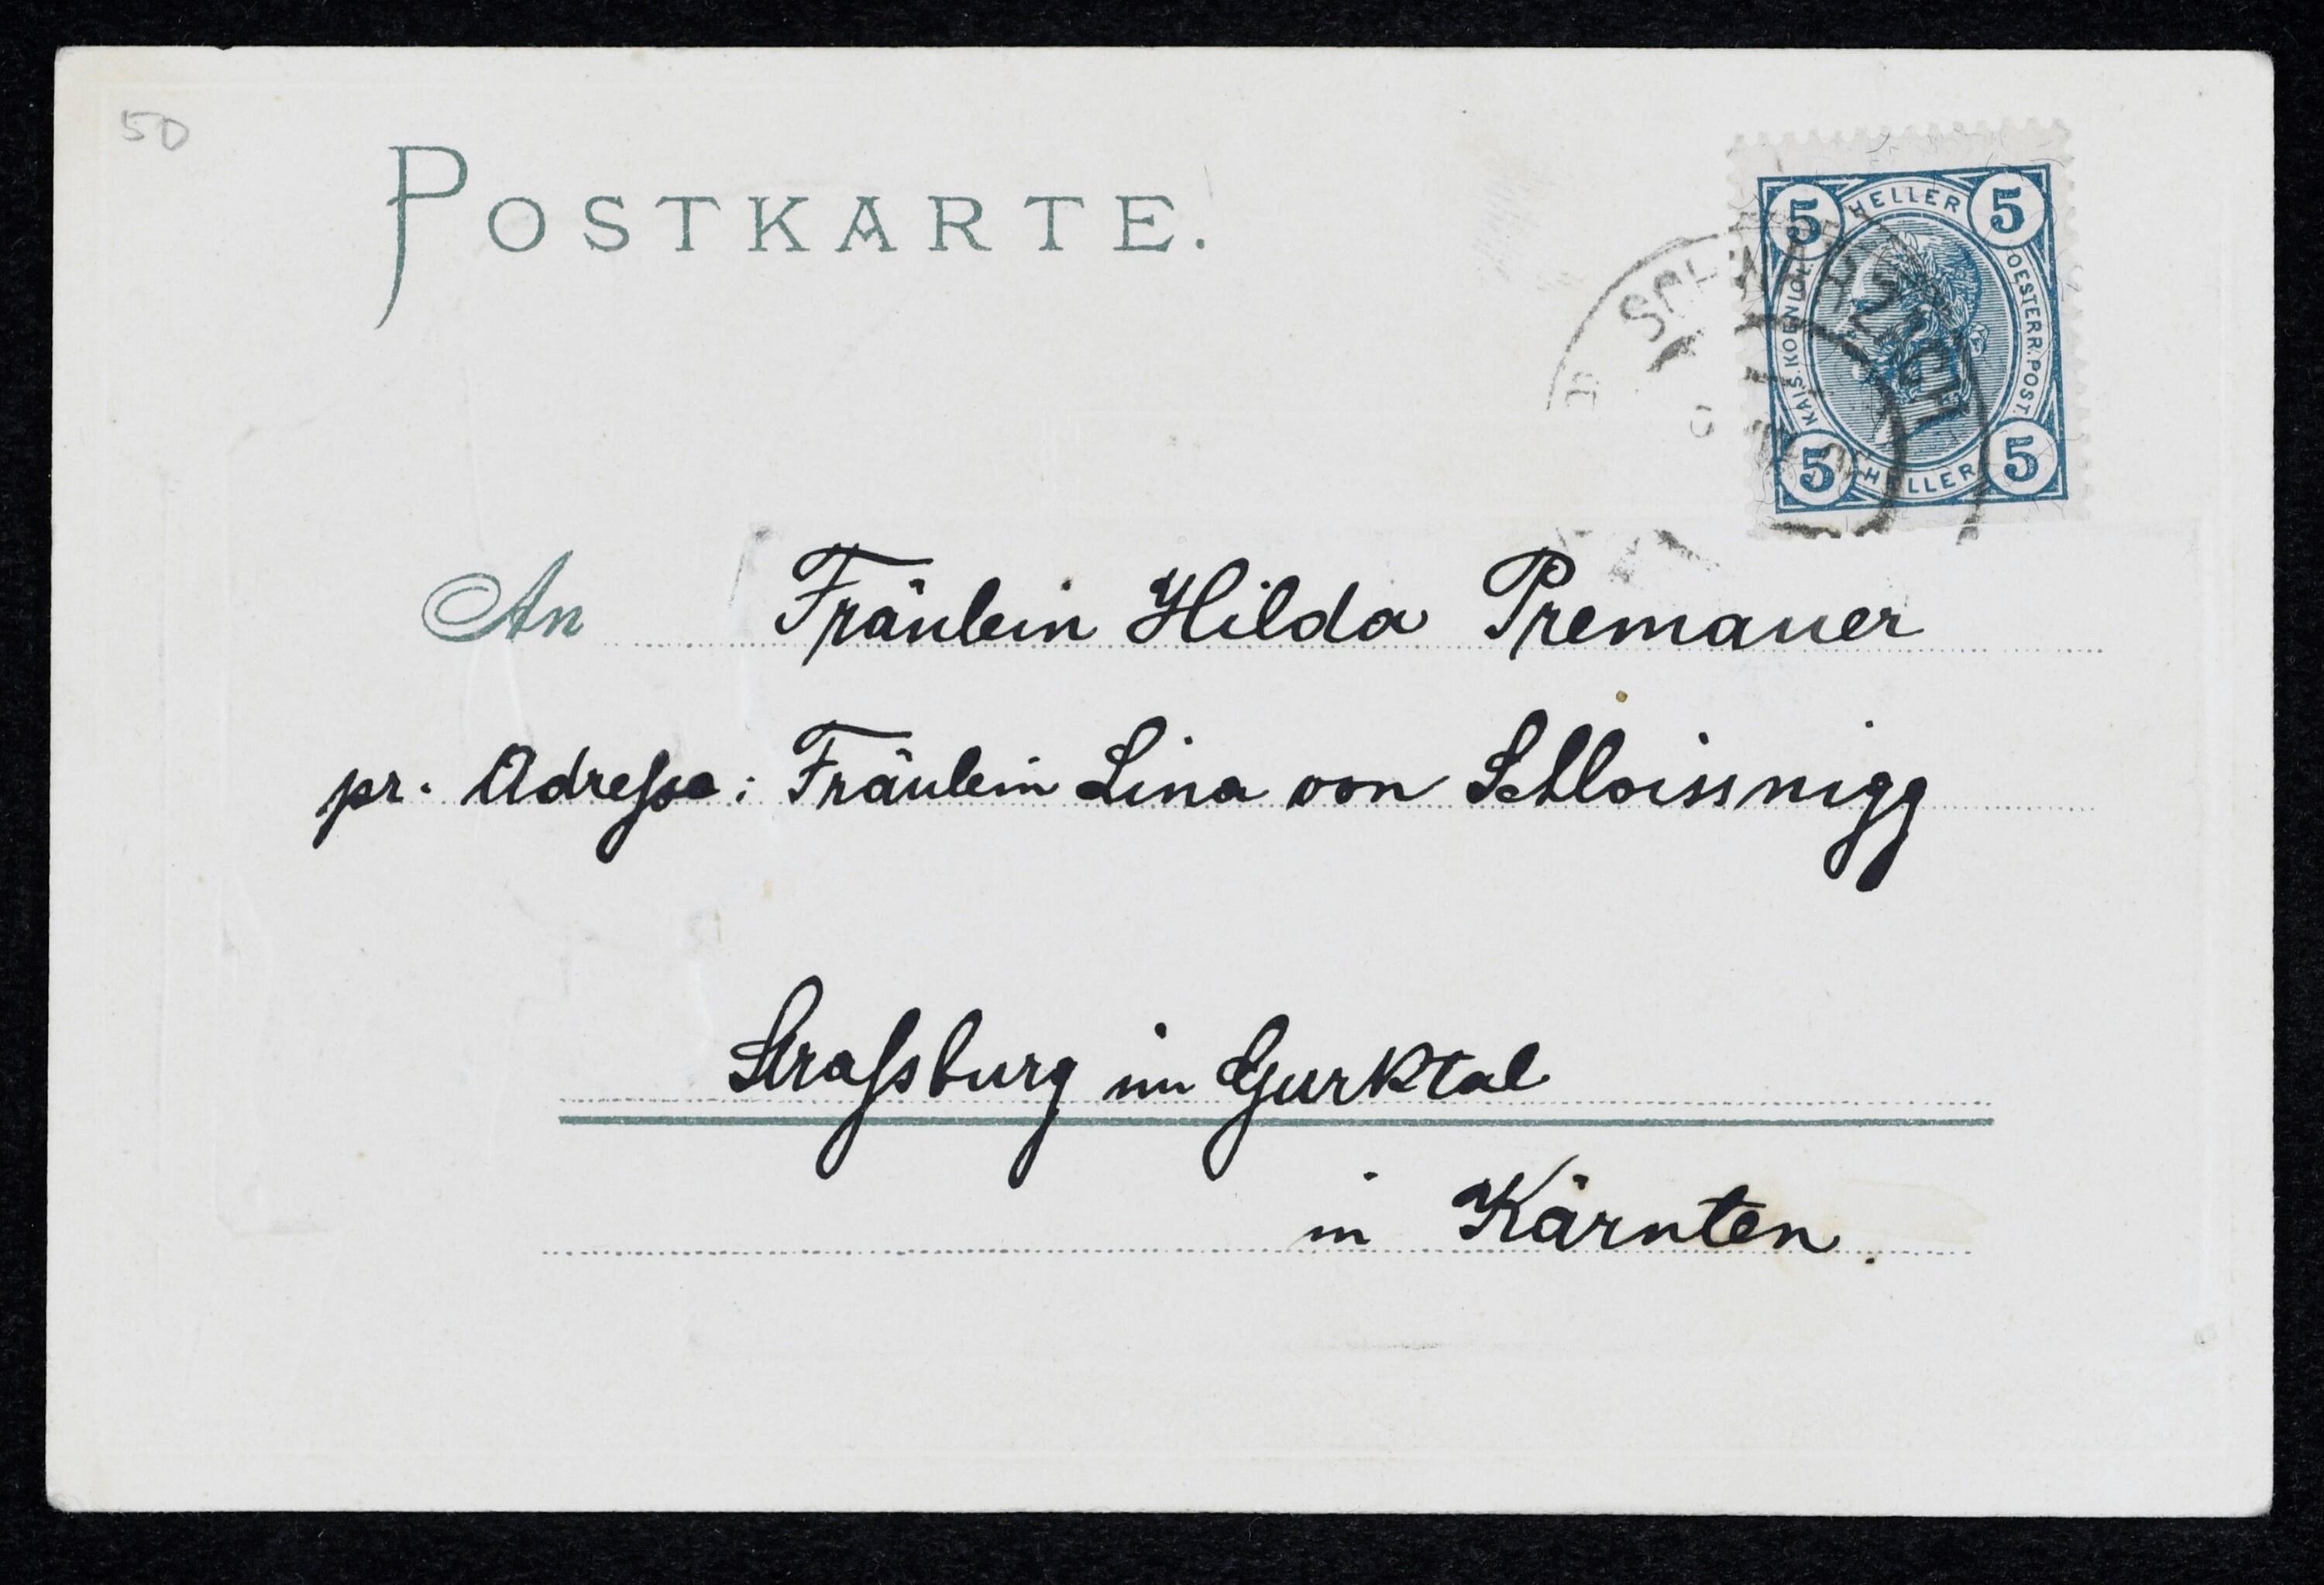 50
POSTKARTE.
5 HELLER 5
KAIS. KOENIGL. OESTERR. POST.
5 HELLER 5
An Fräulein Hilda Premauer
pr. Adreſse: Fräulein Lina von Schloissnigg
Straſsburg im Gurktal
in Kärnten.